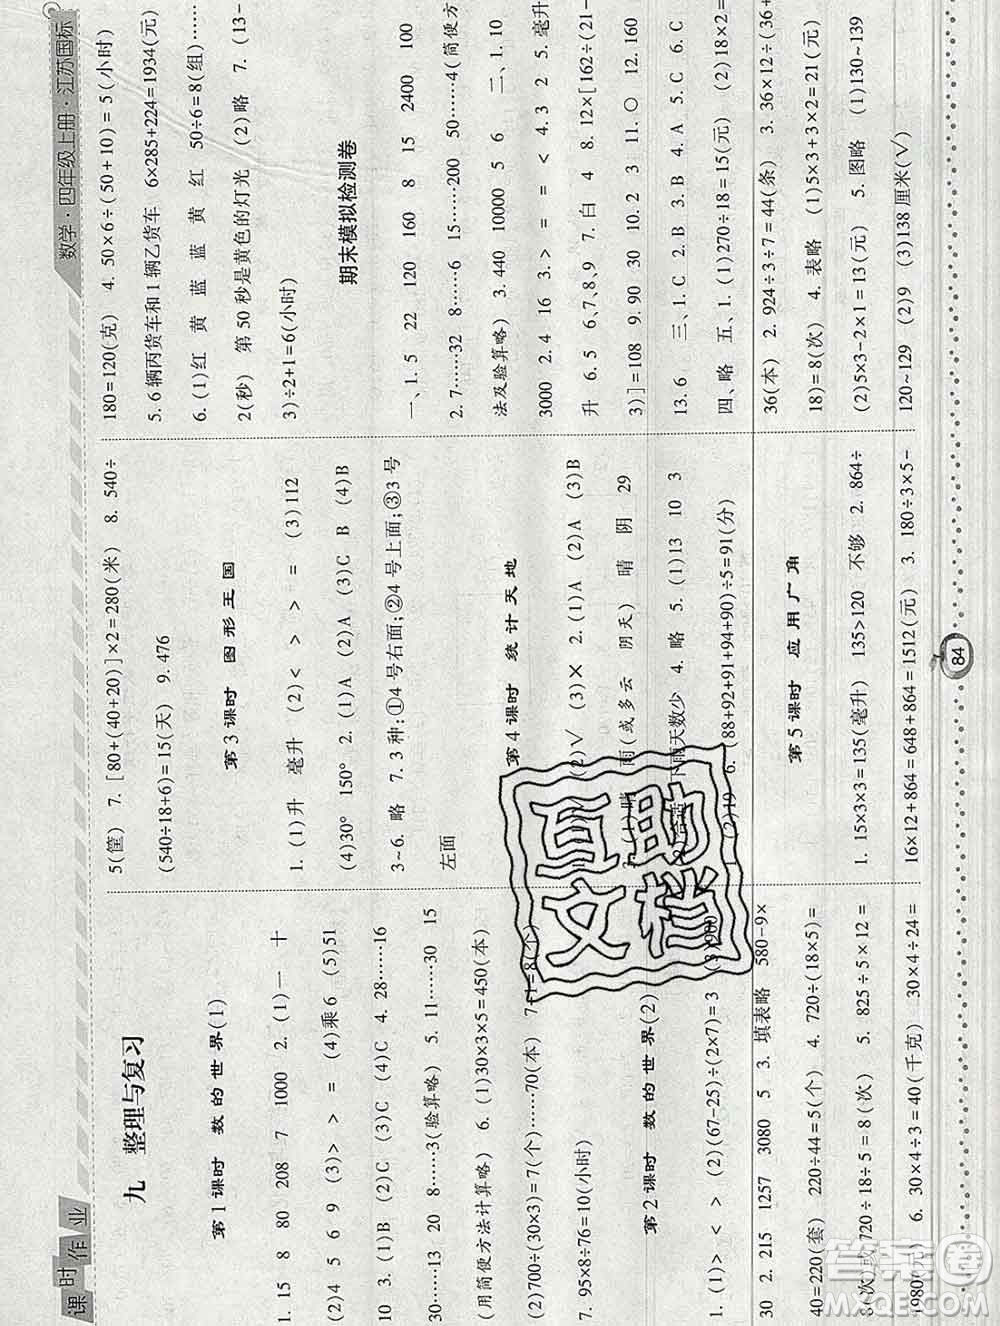 课时作业
数学·四年级上册·江苏国标
九 整理与复习
第1课时 数的世界(1)
1. 15 8 80 208 7 1000 2. (1)一 十
(2)4 5 6 9 (3)> > = (4)乘6 (5)51
10 3. (1)B (2)C (3)C (4)C 4. 28……16
30……13 20 8……3(验算略) 5. 11……30 15
(用简便方法计算略) 6. (1)30×3×5=450(本)
(2)700÷(30×3)=7(个)……70(本) 7+1=8(个)
7. 95×8÷76=10(小时)
第2课时 数的世界(2)
1. (1)> < > (2)(67-25)÷(2×7)=3 (3)900
30 2. 215 1257 3080 5 3. 填表略 580-9×
40=220(套) 220÷44=5(个) 4. 720÷(18×5)=
8(次)或720÷18÷5=8(次) 5. 825÷5×12=
1980(元) 6. 30×4÷3=40(千克) 30×4÷24=
5(筐) 7. [80+(40+20)]×2=280(米) 8. 540÷
(540÷18+6)=15(天) 9. 476
第3课时 图形王国
1. (1)升 毫升 (2)< > > = (3)112
(4)30° 150° 2. (1)A (2)A (3)C B (4)B
3~6. 略 7. 3种:①4号右面;②4号上面;③3号
左面
第4课时 统计天地
(2)√ (3)× 2. (1)A (2)A (3)B
3. (1)晴 雨(或多云 阴天) 晴 阴 29
下雨天数少 4. 略 5. (1)13 10 3
(2)19 6. (88+92+91+94+90)÷5=91(分)
第5课时 应用广角
1. 15×3×3=135(毫升) 135>120 不够 2. 864÷
16×12+864=648+864=1512(元) 3. 180÷3×5-
180=120(克) 4. 50×6÷(50+10)=5(小时)
5. 6辆丙货车和1辆乙货车 6×285+224=1934(元)
6. (1)红 黄 蓝 蓝 黄 红 50÷6=8(组)……
2(秒) 第50秒是黄色的灯光 (2)略 7. (13-
3)÷2+1=6(小时)
期末模拟检测卷
一、1. 5 22 120 160 8 15 2400 100
2. 7……32 8……6 15……200 50……4(简便方
法及验算略) 3. 440 10000 5 6 二、1. 10
3000 2. 4 16 3. > = = < 4. 3 2 5. 毫升
升 6. 5 6,7,8,9 7. 白 4 8. 12×[162÷(21-
3)]=108 9. 90 30 10. 2 3 11. ○ 12. 160
13. 6 三、1. C 2. B 3. B 4. A 5. C 6. C
四、略 五、1. (1)270÷18=15(元) (2)18×2=
36(本) 2. 924÷3÷7=44(条) 3. 36×12÷(36+
18)=8(次) 4. 表略 (1)5×3+3×2=21(元)
(2)5×3-2×1=13(元) 5. 图略 (1)130~139
120~129 (2)9 (3)138厘米(√)
84
互助
文档
答案圈
MXQE.COM